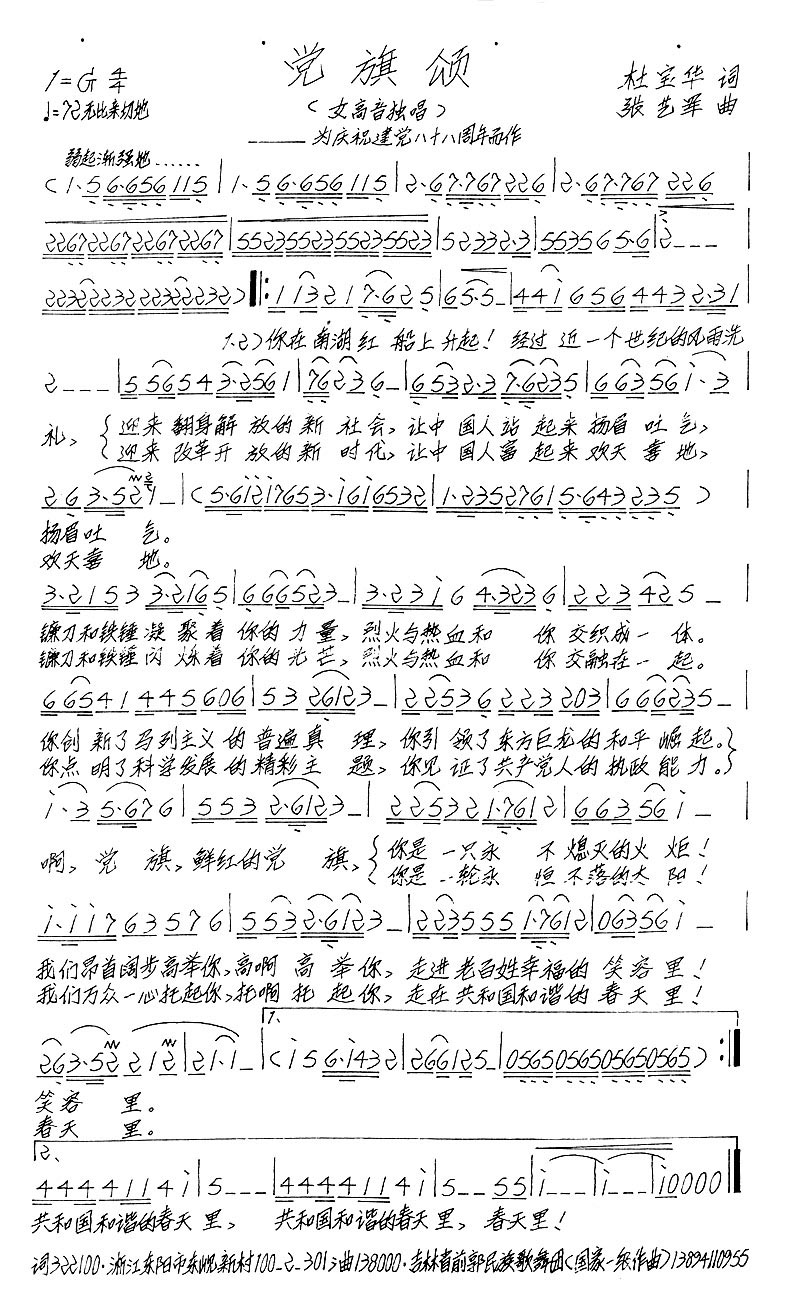 党旗颂
1=G 4/4
杜宝华 词
♩=72 无比亲切地
(女高音独唱)
张艺军 曲
——为庆祝建党八十八周年而作
弱起渐强地……
(1·56·656 115 | 1·56·656 115 | 2·67·767 226 | 2·67·767 226 |
2267226722672267 | 5523552355235523 | 52332·3 | 553565·6 | 2--- |
2232223222322232) ‖: 113217·625 | 65·5- | 441656443 2·31 |
1.2.)你在南湖红 船上升起! 经过 近一个世纪的风雨洗
2--- | 55654 3·2561 | 76223 6- | 6532·3 7·6235 | 663561·3 |
礼, { 迎来 翻身解 放的新 社会, 让中 国人站 起来 扬眉 吐 气,
迎来 改革开 放的新 时代, 让中 国人富 起来 欢天 喜 地,
263·521- | (5·612176 53·161 6532 | 1·2352761 5·643235) |
扬眉吐 气。
欢天喜 地。
3·2153 3·2165 | 6665 23- | 3·2316 4·3236 | 223425- |
镰刀和铁锤 凝 聚着 你的 力 量, 烈火与热血和 你 交织成一 体。
镰刀和铁锤 闪 烁着 你的 光 芒, 烈火与热血和 你 交融在一 起。
66541 445606 | 53 26123- | 22536 223203 | 6662235- |
你创 新了马列主义 的 普遍真 理, 你引 领了东方巨龙的和平 崛起。}
你点 明了科学发展 的精彩主 题, 你见 证了共产党人的 执政能 力。}
1·35·676 | 5532·6123- | 225321·7612 | 663561- |
啊, 党 旗, 鲜红的党 旗, { 你是 一只永 不 熄灭的火 炬!
你是 一轮永 恒 不落的太 阳!
1·117635 76 | 5532·6123- | 223555 1·7612 | 0635 61- |
我们昂首阔步高举你,高啊 高 举 你, 走进 老百姓幸福的 笑 容 里!
我们万众一心托起你,托啊 托 起 你, 走在 共和国和谐的 春 天 里!
1.
263·52 212 | 21·1- | (156·1432 | 266125- | 0565056505650565) :‖
笑容 里。
春天 里。
2.
444 41141 | 5--- | 444 41141 | 5--55 | 1--- | 1--- | 10000 ‖
共和国和谐的春天 里, 共和国和谐的春天 里, 春天里!
词322100·浙江东阳市东岘新村100-2-301;曲138000·吉林省前郭民族歌舞团(国家一级作曲)13894110955